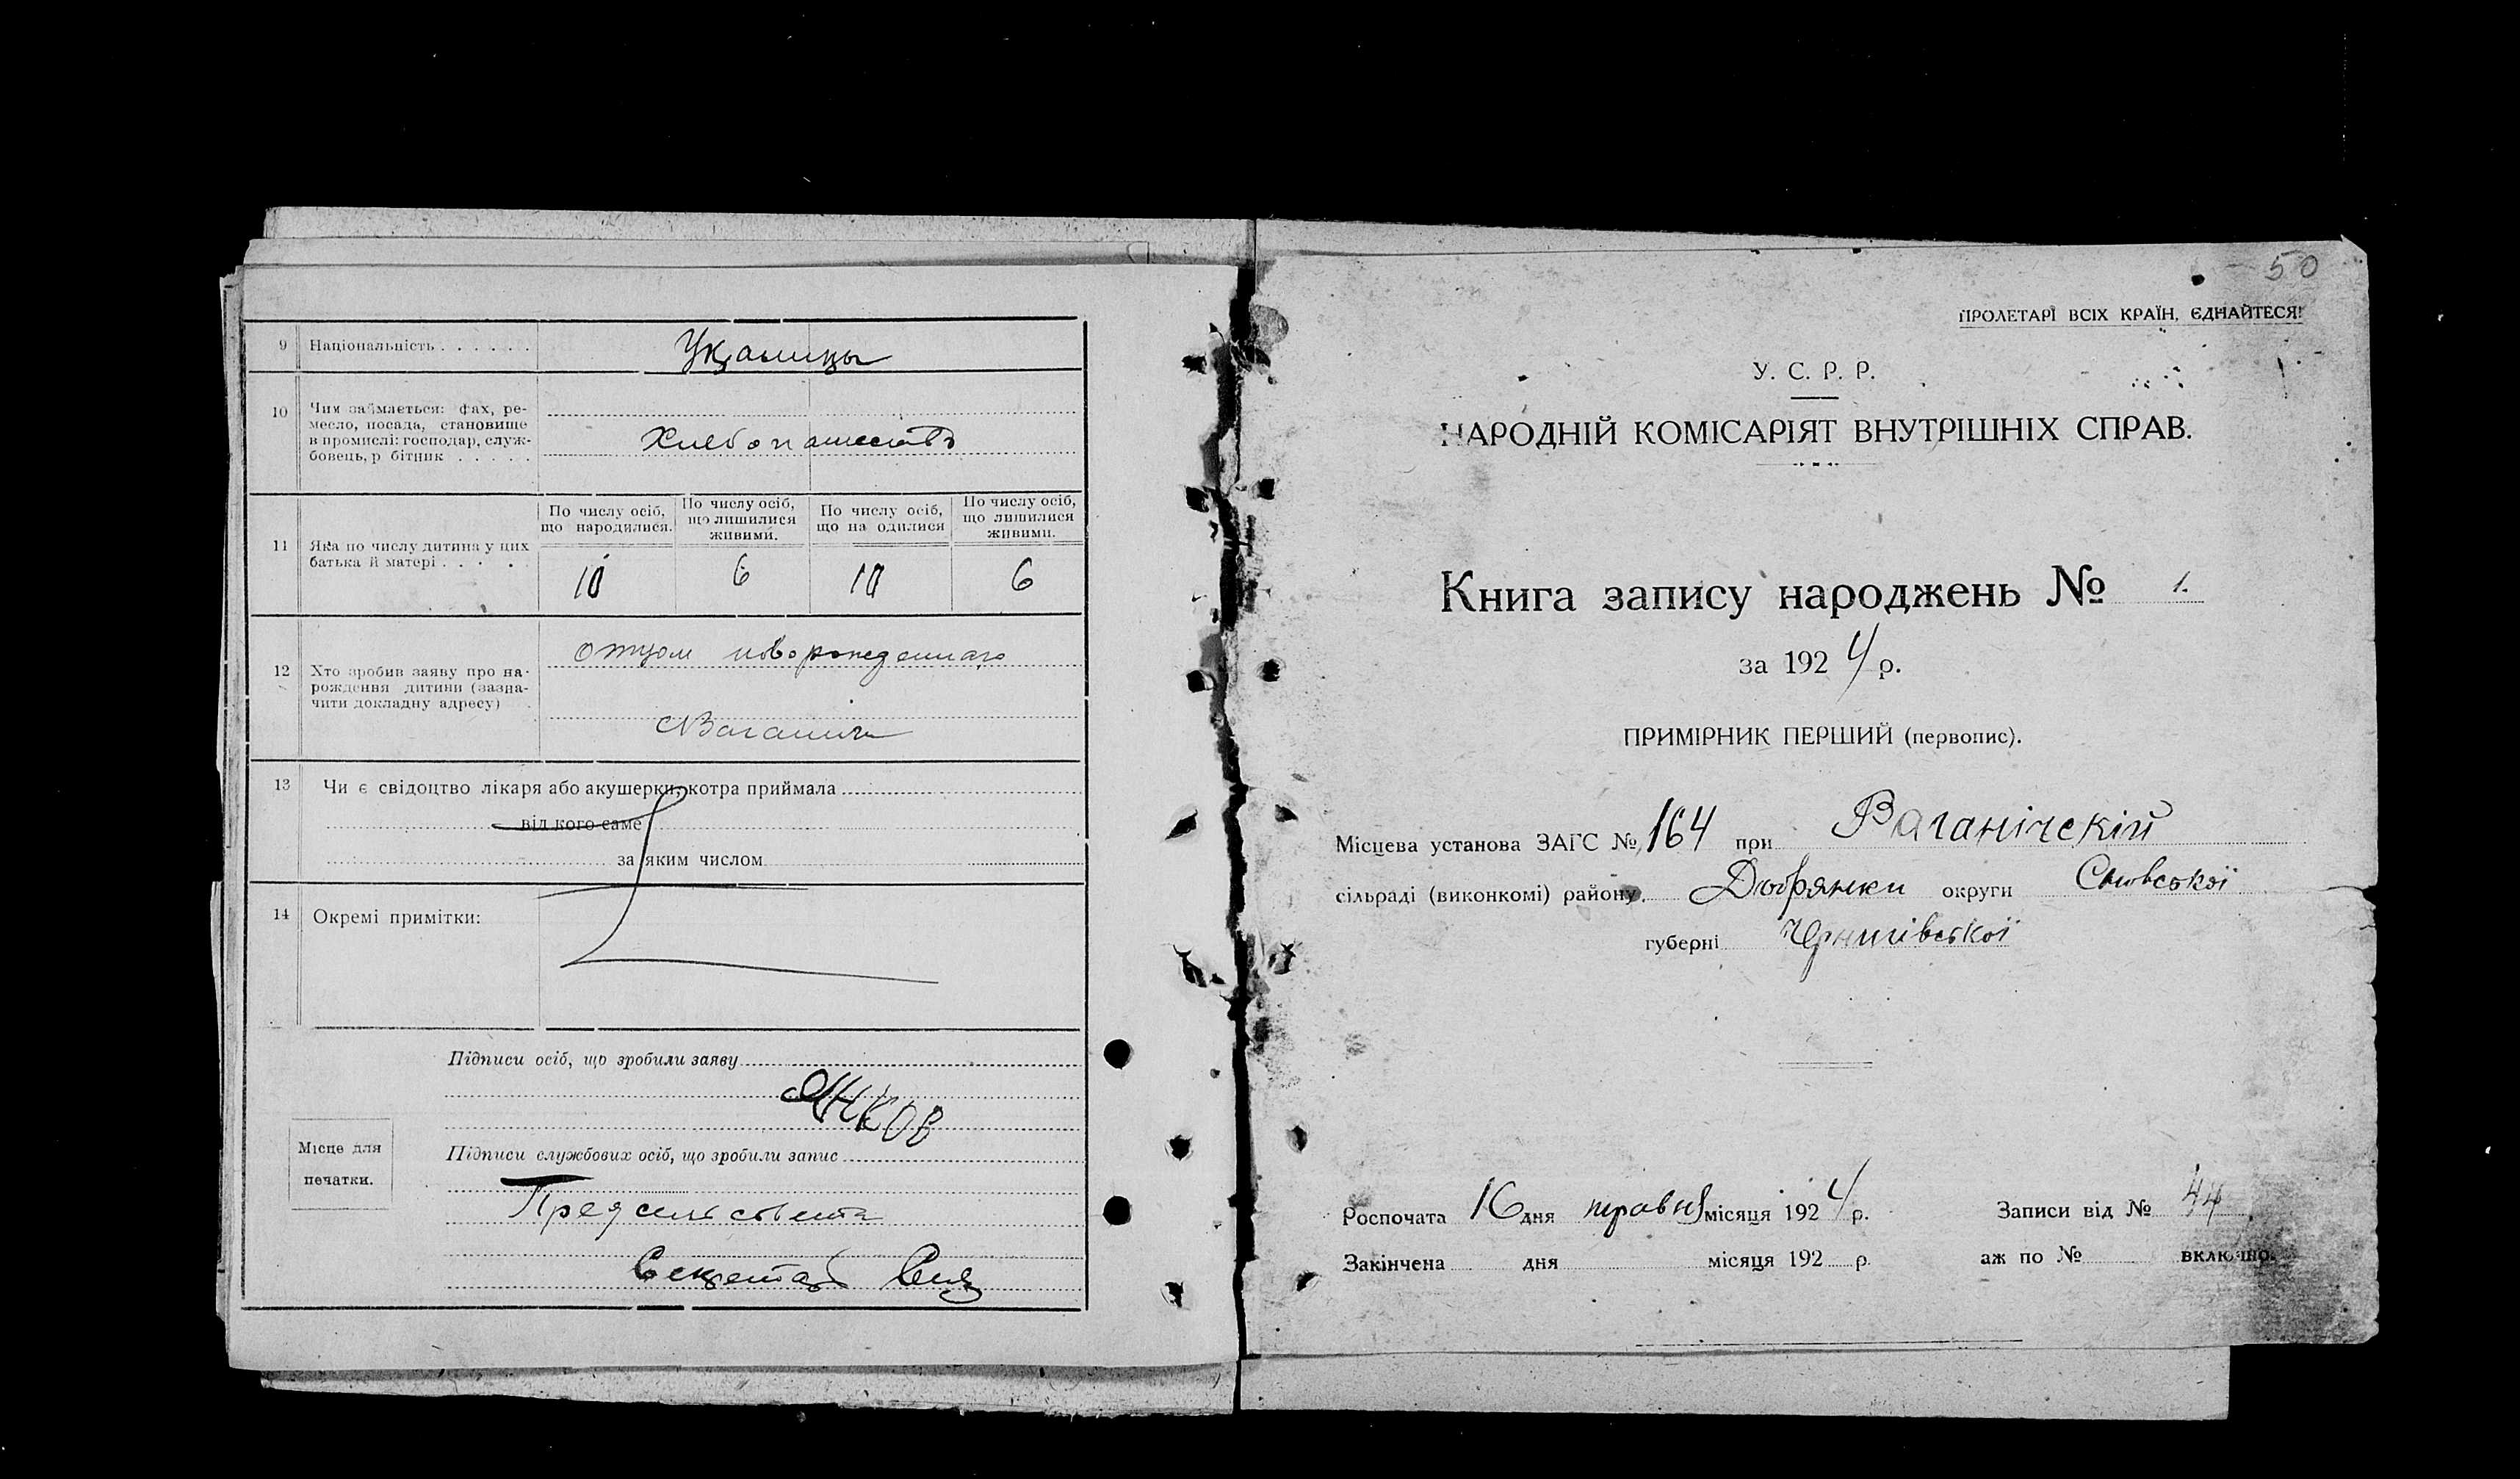 9 Національність . . . . . . Украинцы
10 Чим займається: фах, ре-
месло, посада, становище
в промислі: господар, служ-
бовець, р бітник . . . . .
Хлебопашество
11 Яка по числу дитина у цих
батька й матері . . . .
По числу осіб,
що народилися.
По числу осіб,
що лишилися
живими.
По числу осіб,
що на одилися
По числу осіб,
що лишилися
живими.
10 6 10 6
12 Хто зробив заяву про на-
рождення дитини (зазна-
чити докладну адресу)
отцом новорожденаго
с Ваганичи
13 Чи є свідоцтво лікаря або акушерки, котра приймала
від кого саме
за яким числом
14 Окремі примітки:
Підписи осіб, що зробили заяву
Янков
Місце для
печатки.
Підписи службових осіб, що зробили запис
Пред сельсовета
Секретарь
50
ПРОЛЕТАРІ ВСІХ КРАЇН, ЄДНАЙТЕСЯ!
У. С. Р. Р.
НАРОДНІЙ КОМІСАРІЯТ ВНУТРІШНІХ СПРАВ.
Книга запису народжень № 1.
за 1924 р.
ПРИМІРНИК ПЕРШИЙ (первопис).
Місцева установа ЗАГС № 164 при Ваганічскій
сільраді (виконкомі) району Добрянки округи Сновської
губерні Чернигівської
Роспочата 16 дня травня місяця 1924 р. Записи від № 44
Закінчена дня місяця 192 р. аж по № включно.